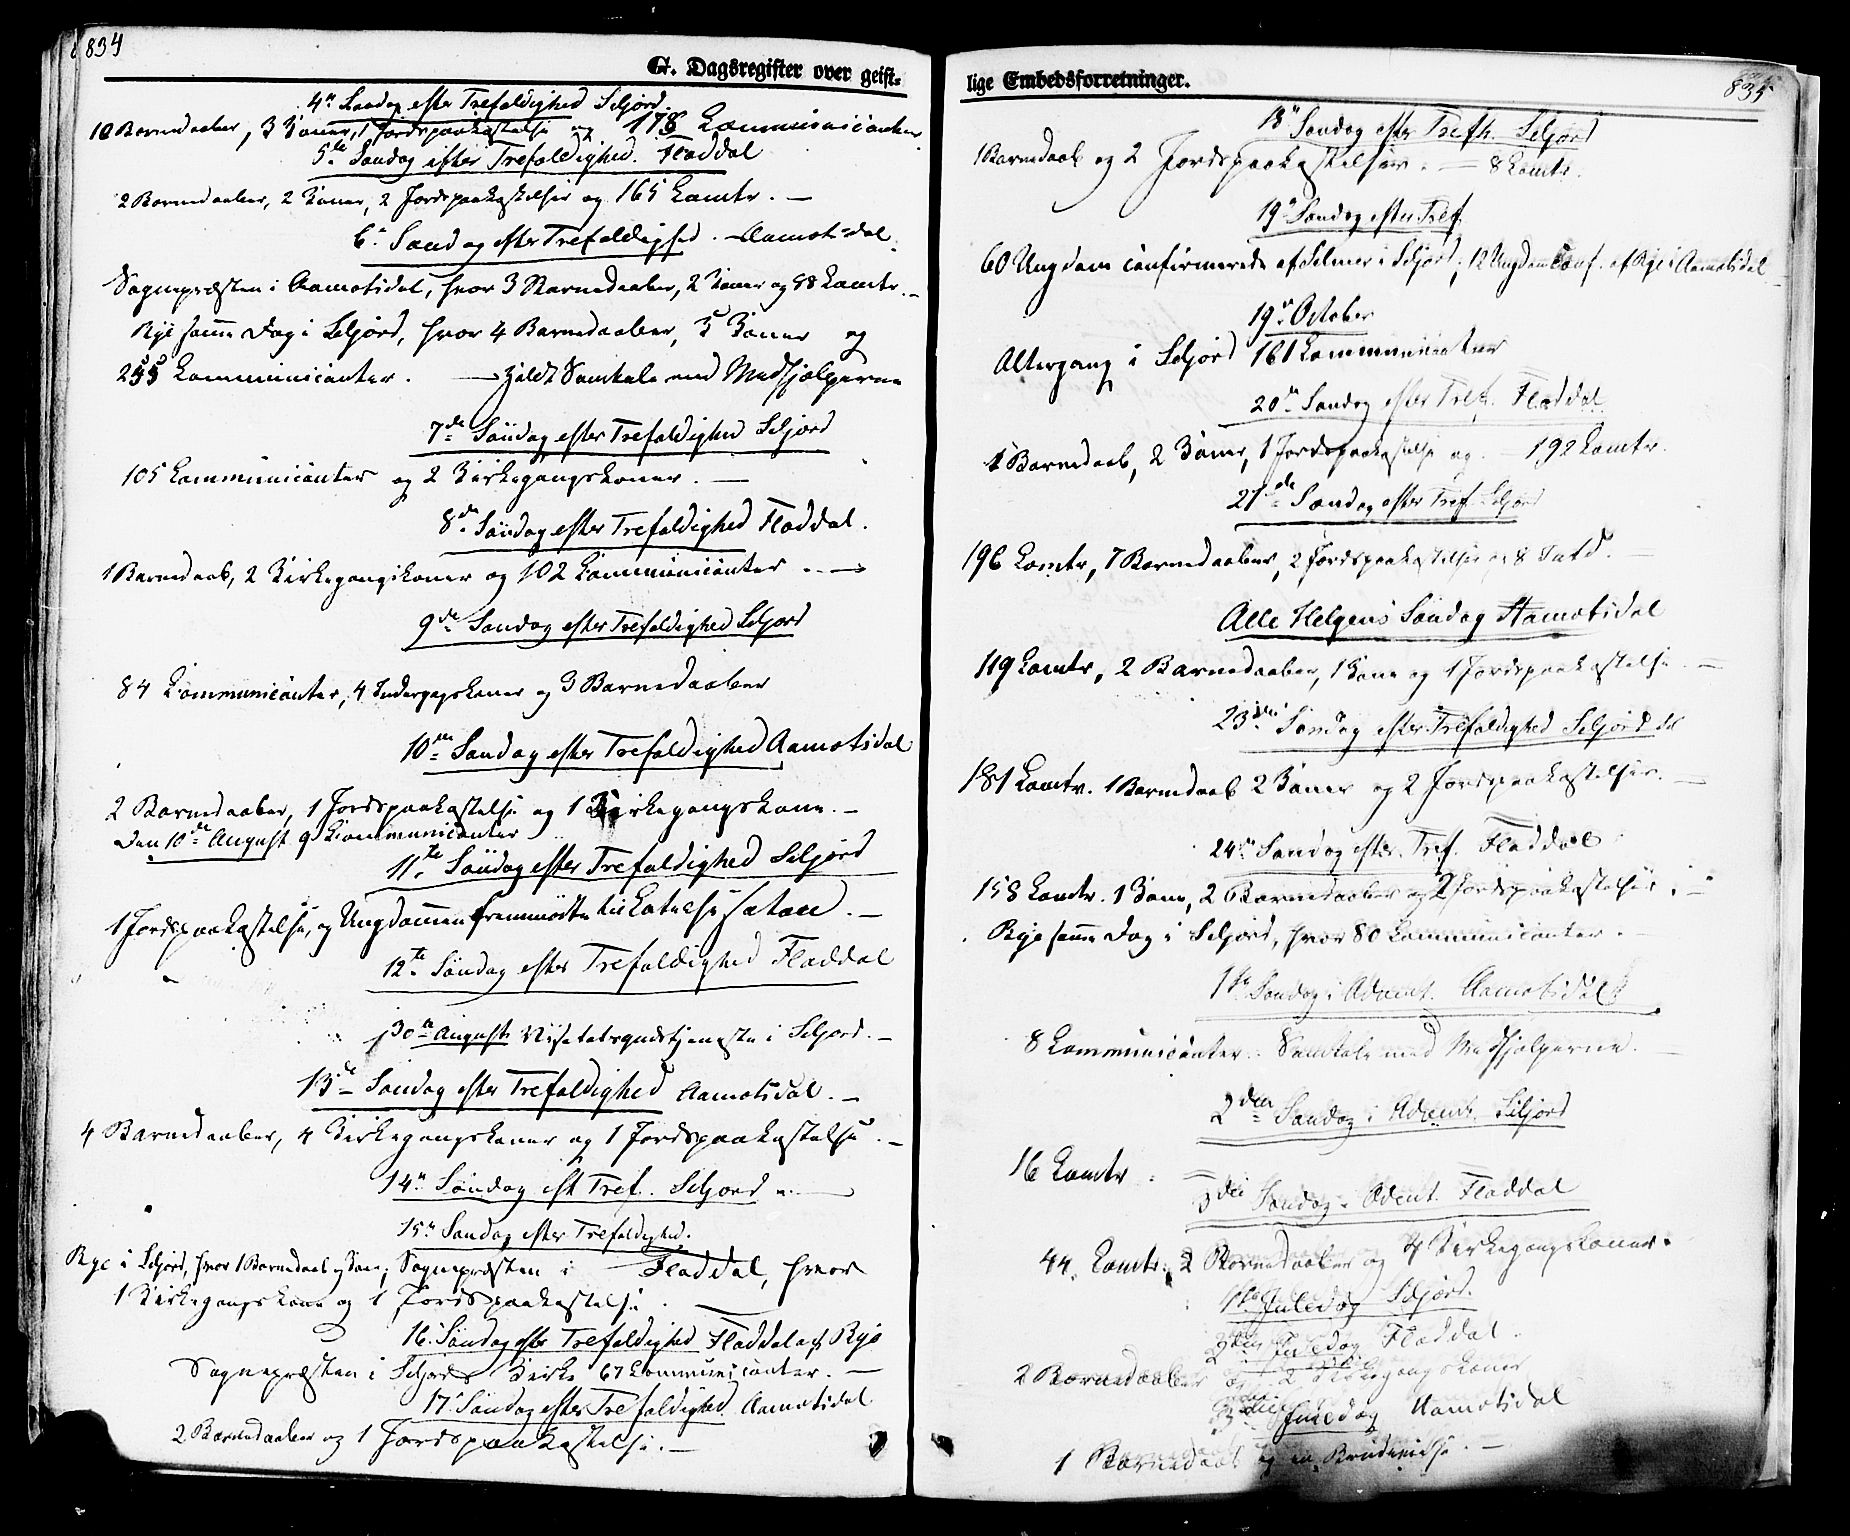 834
G. Dagsregister over geist-
4de Søndag efter Trefoldighed Seljord.
10 Barnedaaber, 3 Koner, 1 Jordspaakastelse og 178 Communicanter
5te Søndag efter Trefoldighed. Fladdal
2 Barnedaaber, 2 Koner, 2 Jordspaakastelser og 165 Comtr. —
6te Søndag efter Trefoldighed. — Aamotsdal.
Sognepræsten i Aamotsdal, hvor 3 Barnedaaber, 2 Koner og 88 Comtr. —
Rye samme Dag i Seljord, hvor 4 Barnedaaber, 5 Koner og
255 Communicanter. — holdt Samtale med Medhjælperne
7de Søndag efter Trefoldighed Seljord
105 Communicanter og 2 Kirkegangskoner. —
8de Søndag efter Trefoldighed Fladdal.
1 Barnedaab, 2 Kirkegangskoner og 102 Communicanter. —
9de Søndag efter Trefoldighed Seljord
84 Communicanter, 4 Indgangskoner og 3 Barnedaaber
10de Søndag efter Trefoldighed Aamotsdal
2 Barnedaaber, 1 Jordspaakastelse og 1 Kirkegangskone. —
Den 10de August 9 Communicanter
11te Søndag efter Trefoldighed Seljord
1 Jordspaakastelse, og Ungdommen fremmødte til
12te Søndag efter Trefoldighed Fladdal
30te August Visitatsgudstjeneste i Seljord. —
13de Søndag efter Trefoldighed Aamotsdal. —
4 Barnedaaber, 4 Kirkegangskoner og 1 Jordspaakastelse. —
14de Søndag eft Tref. Seljord —
15de Søndag efter Trefoldighed.
Rye i Seljord, hvor 1 Barnedaab og Kone; Sognepræsten i Fladdal, hvor
1 Kirkegangskone og 1 Jordspaakastelse.
16. Søndag efter Trefoldighed Fladdal af Rye
Sognepræsten i Seljords Kirke 67 Communicanter. —
17. Søndag efter Trefoldighed Aamotsdal
2 Barnedaaber og 1 Jordspaakastelse. —
lige Embedsforretninger.
835
18de Søndag efter Trefh. Seljord
1 Barnedaab og 2 Jordspaakastelser. — 8 Comtr.
19de Søndag efter Tref.
60 Ungdom confirmerede af Selmer i Seljord; 12 Ungdom Conf. af Rye i Aamotsdal
19de October
Altergang i Seljord 161 Communicanter
20de Søndag efter Tref. Fladdal
1 Barnedaab, 2 Koner, 1 Jordspaakastelse og — 192 Comtr.
21de Søndag efter Tref. Seljord
196 Comtr, 7 Barnedaaber, 2 Jordspaakastelser og 8 —
Alle Helgens Søndag Aamotsdal
119 Comtr, 2 Barnedaaber, 1 Kone og 1 Jordspaakastelse. —
23de Søndag efter Trefoldighed Seljord
181 Comtr. 1 Barnedaab 2 Koner og 2 Jordspaakastelser. —
24de Søndag efter Tref. Fladdal
158 Comtr. 1 Kone, 2 Barnedaaber og 2 Jordspaakastelser; —
Rye samme Dag i Seljord, hvor 80 Communicanter. —
1ste Søndag i Advent. Aamotsdal
8 Communicanter. Samtale med Medhjælperne. —
2den Søndag i Advent. Seljord
16 Comtr
3die Søndag i Advent. Fladdal
44. Comtr. 2 Barnedaaber og 4 Kirkegangskoner.
1ste Juledag Seljord.
2den Juledag Fladdal.
2 Barnedaaber og 2 Kirkegangskoner
3die Juledag Aamotsdal
1 Barnedaab og en Brudevielse. —